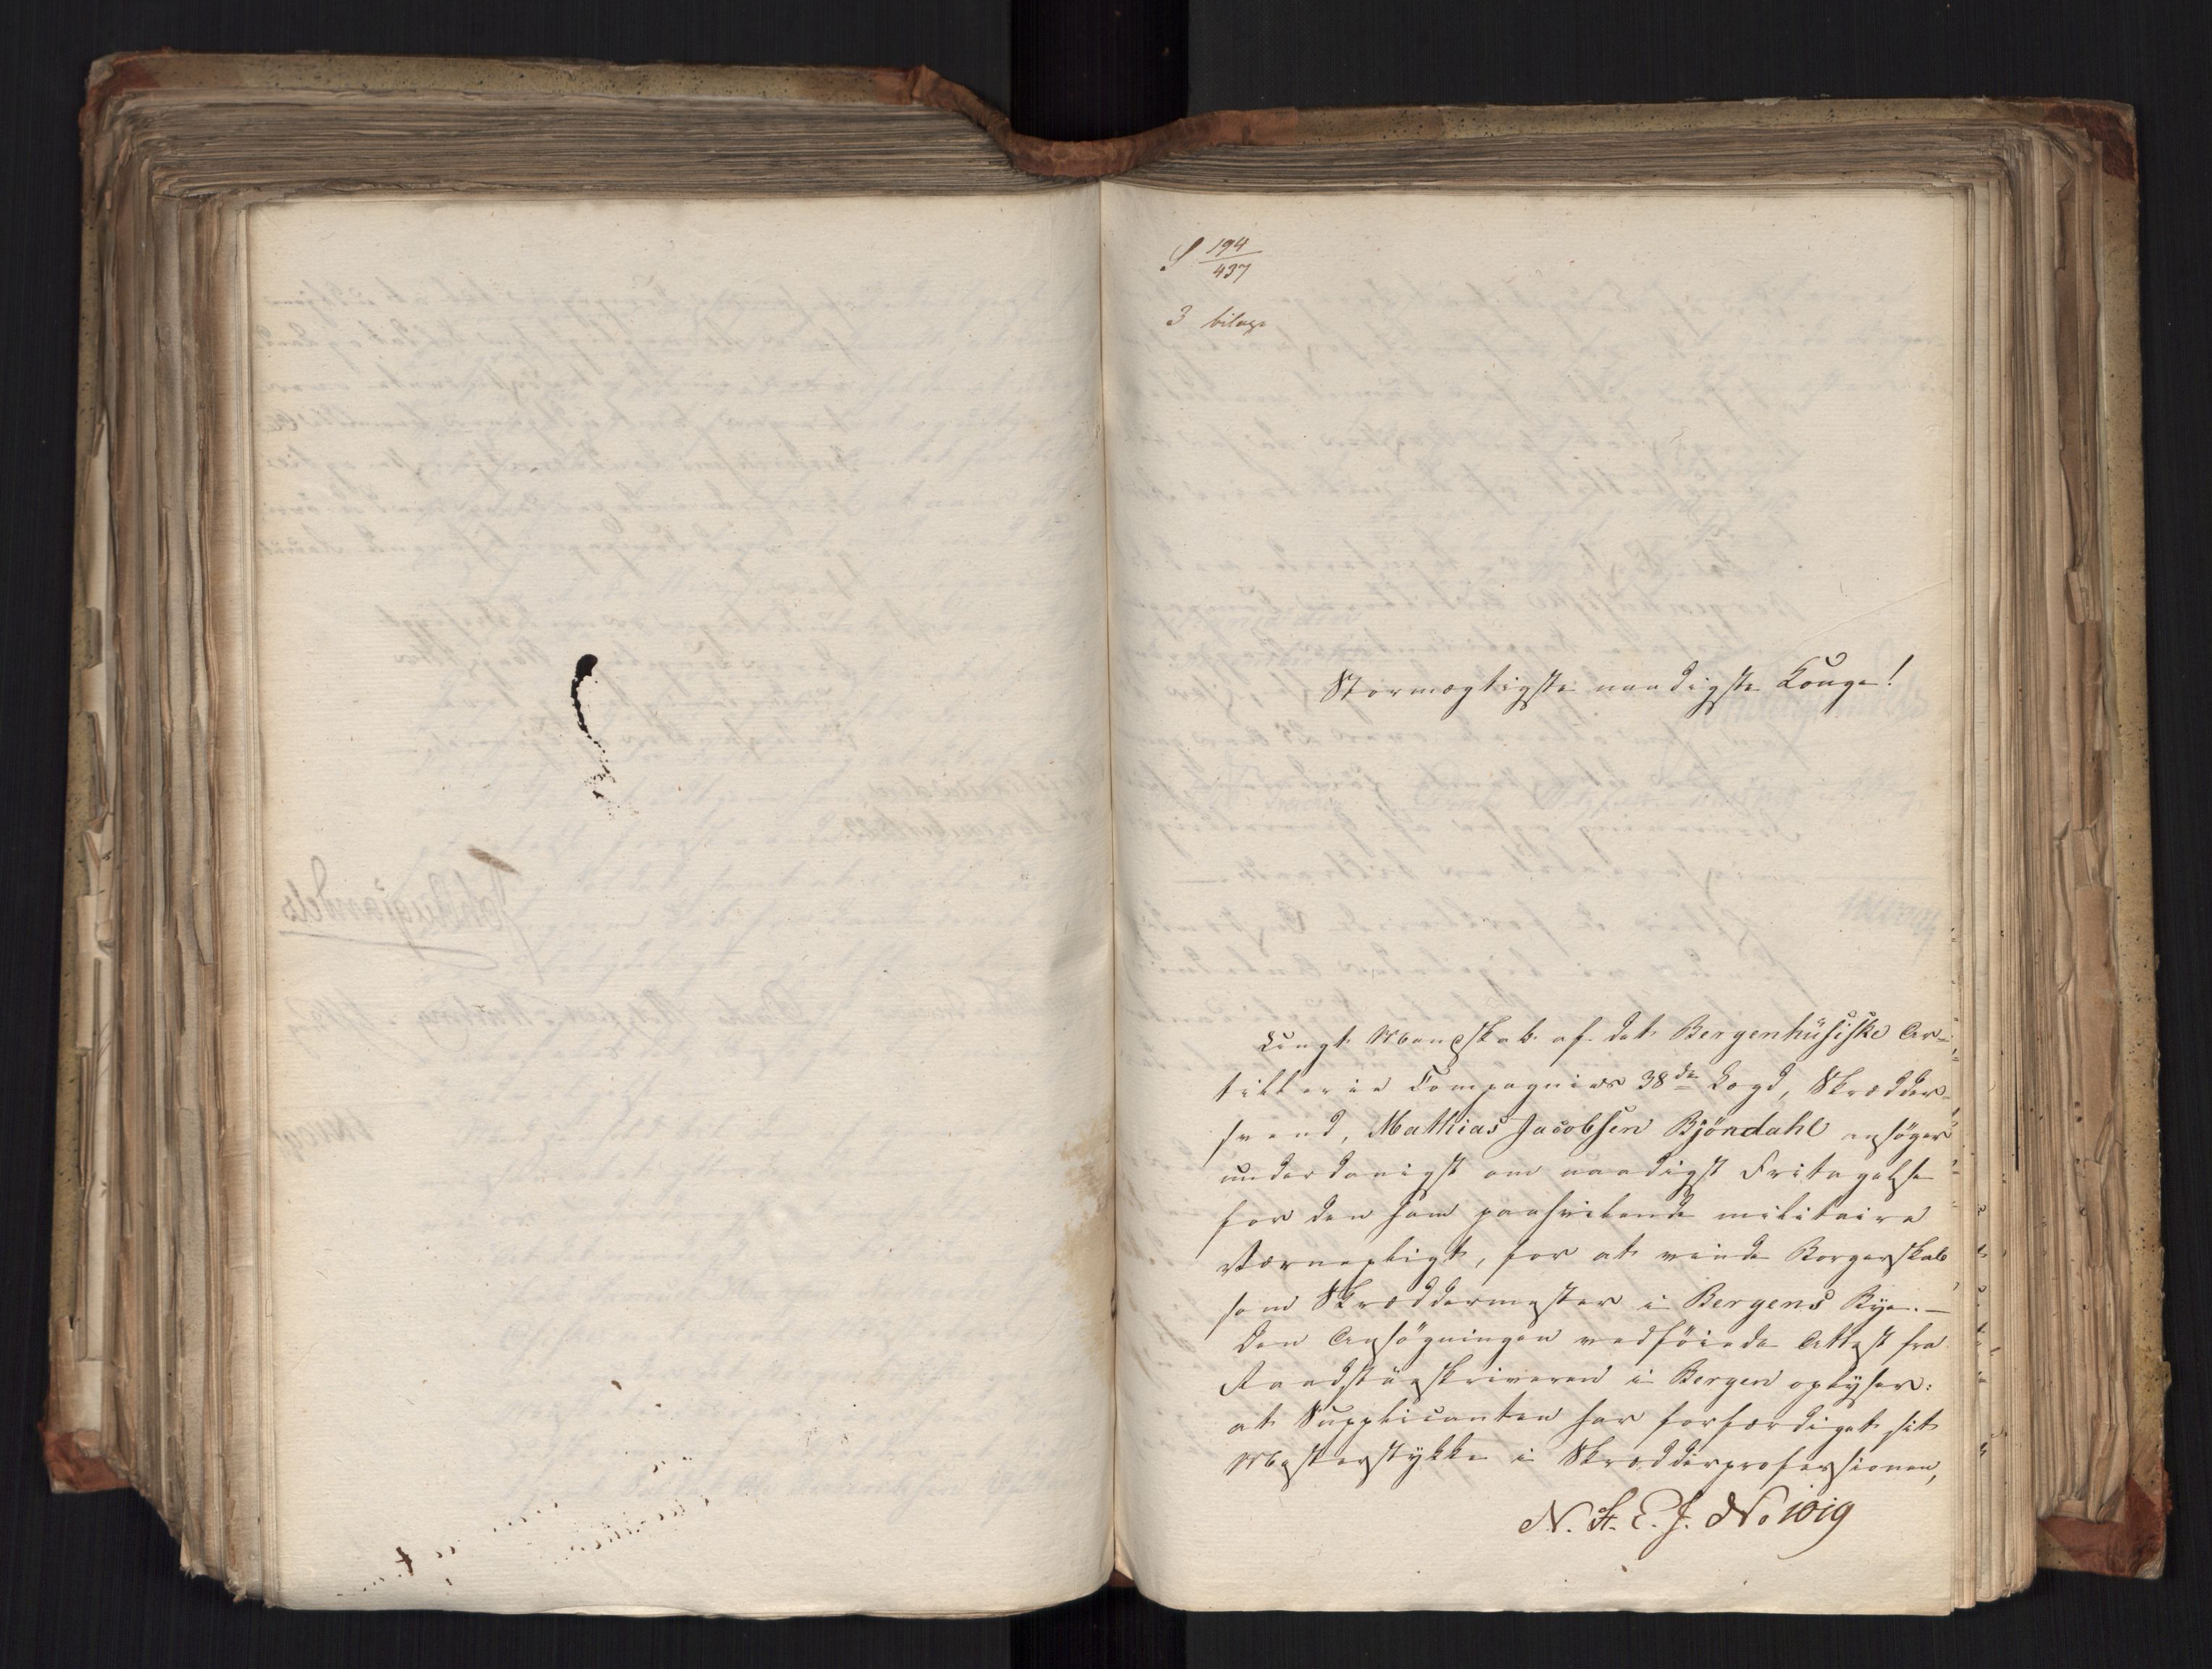 S 194/437
3 bilage
Stormægtigste naadigste Konge!
Ungt Mandskab af det Bergenhusiske Ar-
tillerie Compagnies 38de Lægd, Skrædder-
svend, Mathias Jacobsen Bjöndahl ansöger
underdanigst om naadigst Fritagelse
for den ham paahvilende militaire
Værnepligt, for at vinde Borgerskab
som Skræddermester i Bergens Bye.—
Den Ansögningen vedföiede Attest fra
Raadstueskriveren i Bergen oplyser:
at Supplicanten har forfærdiget sit
Mesterstykke i Skrædderprofessionen,
N. St. E. J. No 1019